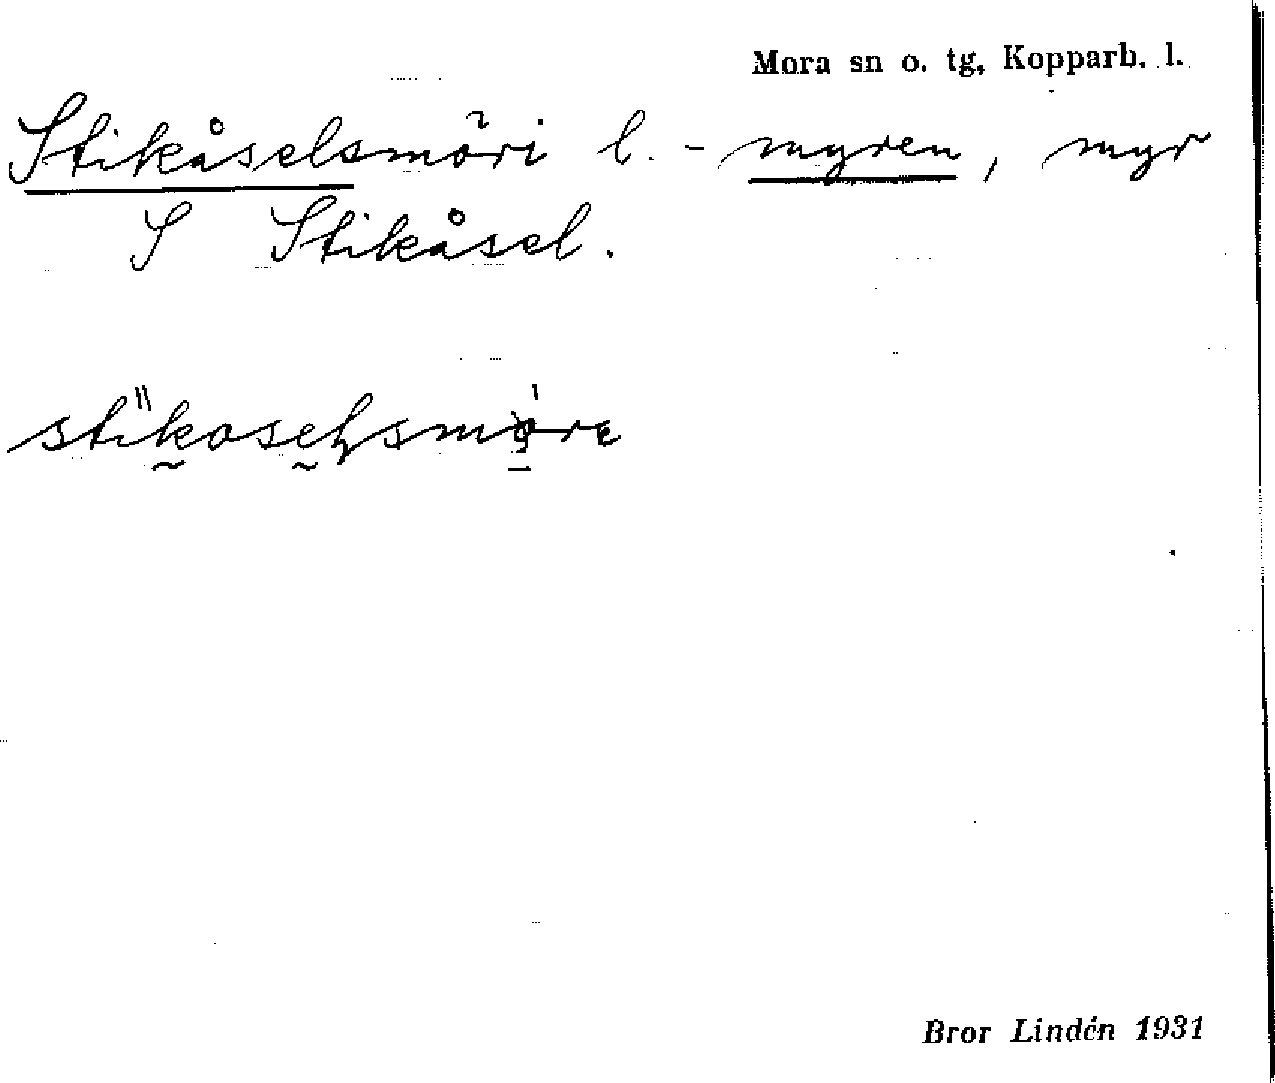 Mora sn o. tg, Kopparb. l.
Stikåselsmöri l. -myren, myr
S Stikåsel.
Bror Lindén 1931